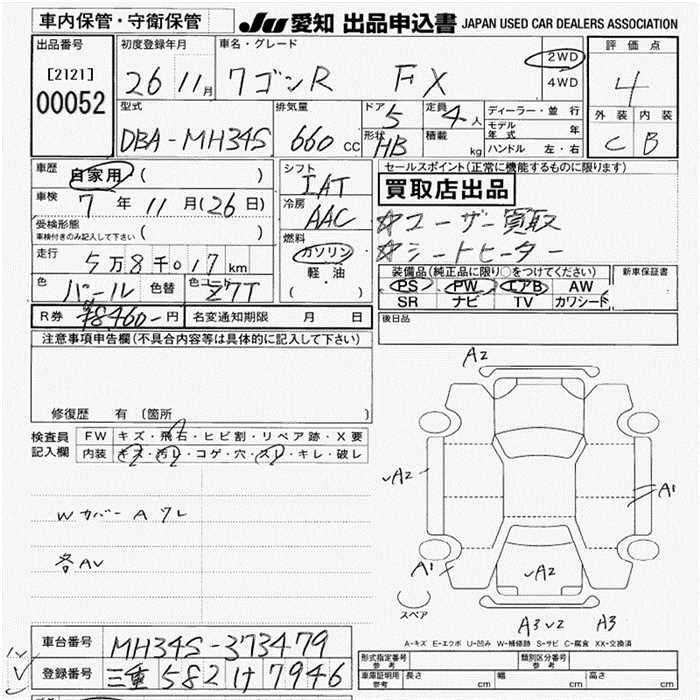 車内保管・守衛保管
JU 愛知 出品申込書 JAPAN USED CAR DEALERS ASSOCIATION
出品番号 [2121] 00052
初度登録年月 26 11月
車名・グレード ワゴンR FX
2WD
4WD
評価点 4
外装 内装
C B
型式 DBA-MH34S
排気量 660 CC
ドア 5
形状 HB
定員 4人
積載 kg
ディーラー・並行
モデル年式 年
ハンドル 左・右
車歴 自家用 ( )
車検 7年 11月(26日)
受検形態
車検付きのみ記入して下さい ( )
走行 5万8千017km
色 パール 色替 色コード Z7T
シフト IAT
冷房 AAC
燃料 ガソリン
軽・油
( )
セールスポイント(正常に機能するものに限ります)
買取店出品
☆ユーザー買取
☆シートヒーター
装備品(純正品に限り○をつけてください)
PS PW エアB AW
SR ナビ TV カワシート
新車保証書
R券 ¥8460-円 名変通知期限 月 日
後日品
注意事項申告欄(不具合内容等は具体的に記入して下さい)
修復歴 有 (箇所 )
検査員記入欄
FW キズ・飛石・ヒビ割・リペア跡・X要
内装 キズ・汚レ・コゲ・穴・スレ・キレ・破レ
Wカバー A ワレ
各AV
A2
A2
A1
A1
A2
スペア
A3 V2 A3
A-キズ E-エクボ U-凹み W-補修跡 S-サビ C-腐食 XX-交換済
車台番号 MH34S-373479
登録番号 三重 582 け 7946
形式指定番号 参考
類別区分番号 参考
車庫証明用 参考 長さ cm 幅 cm 高さ cm